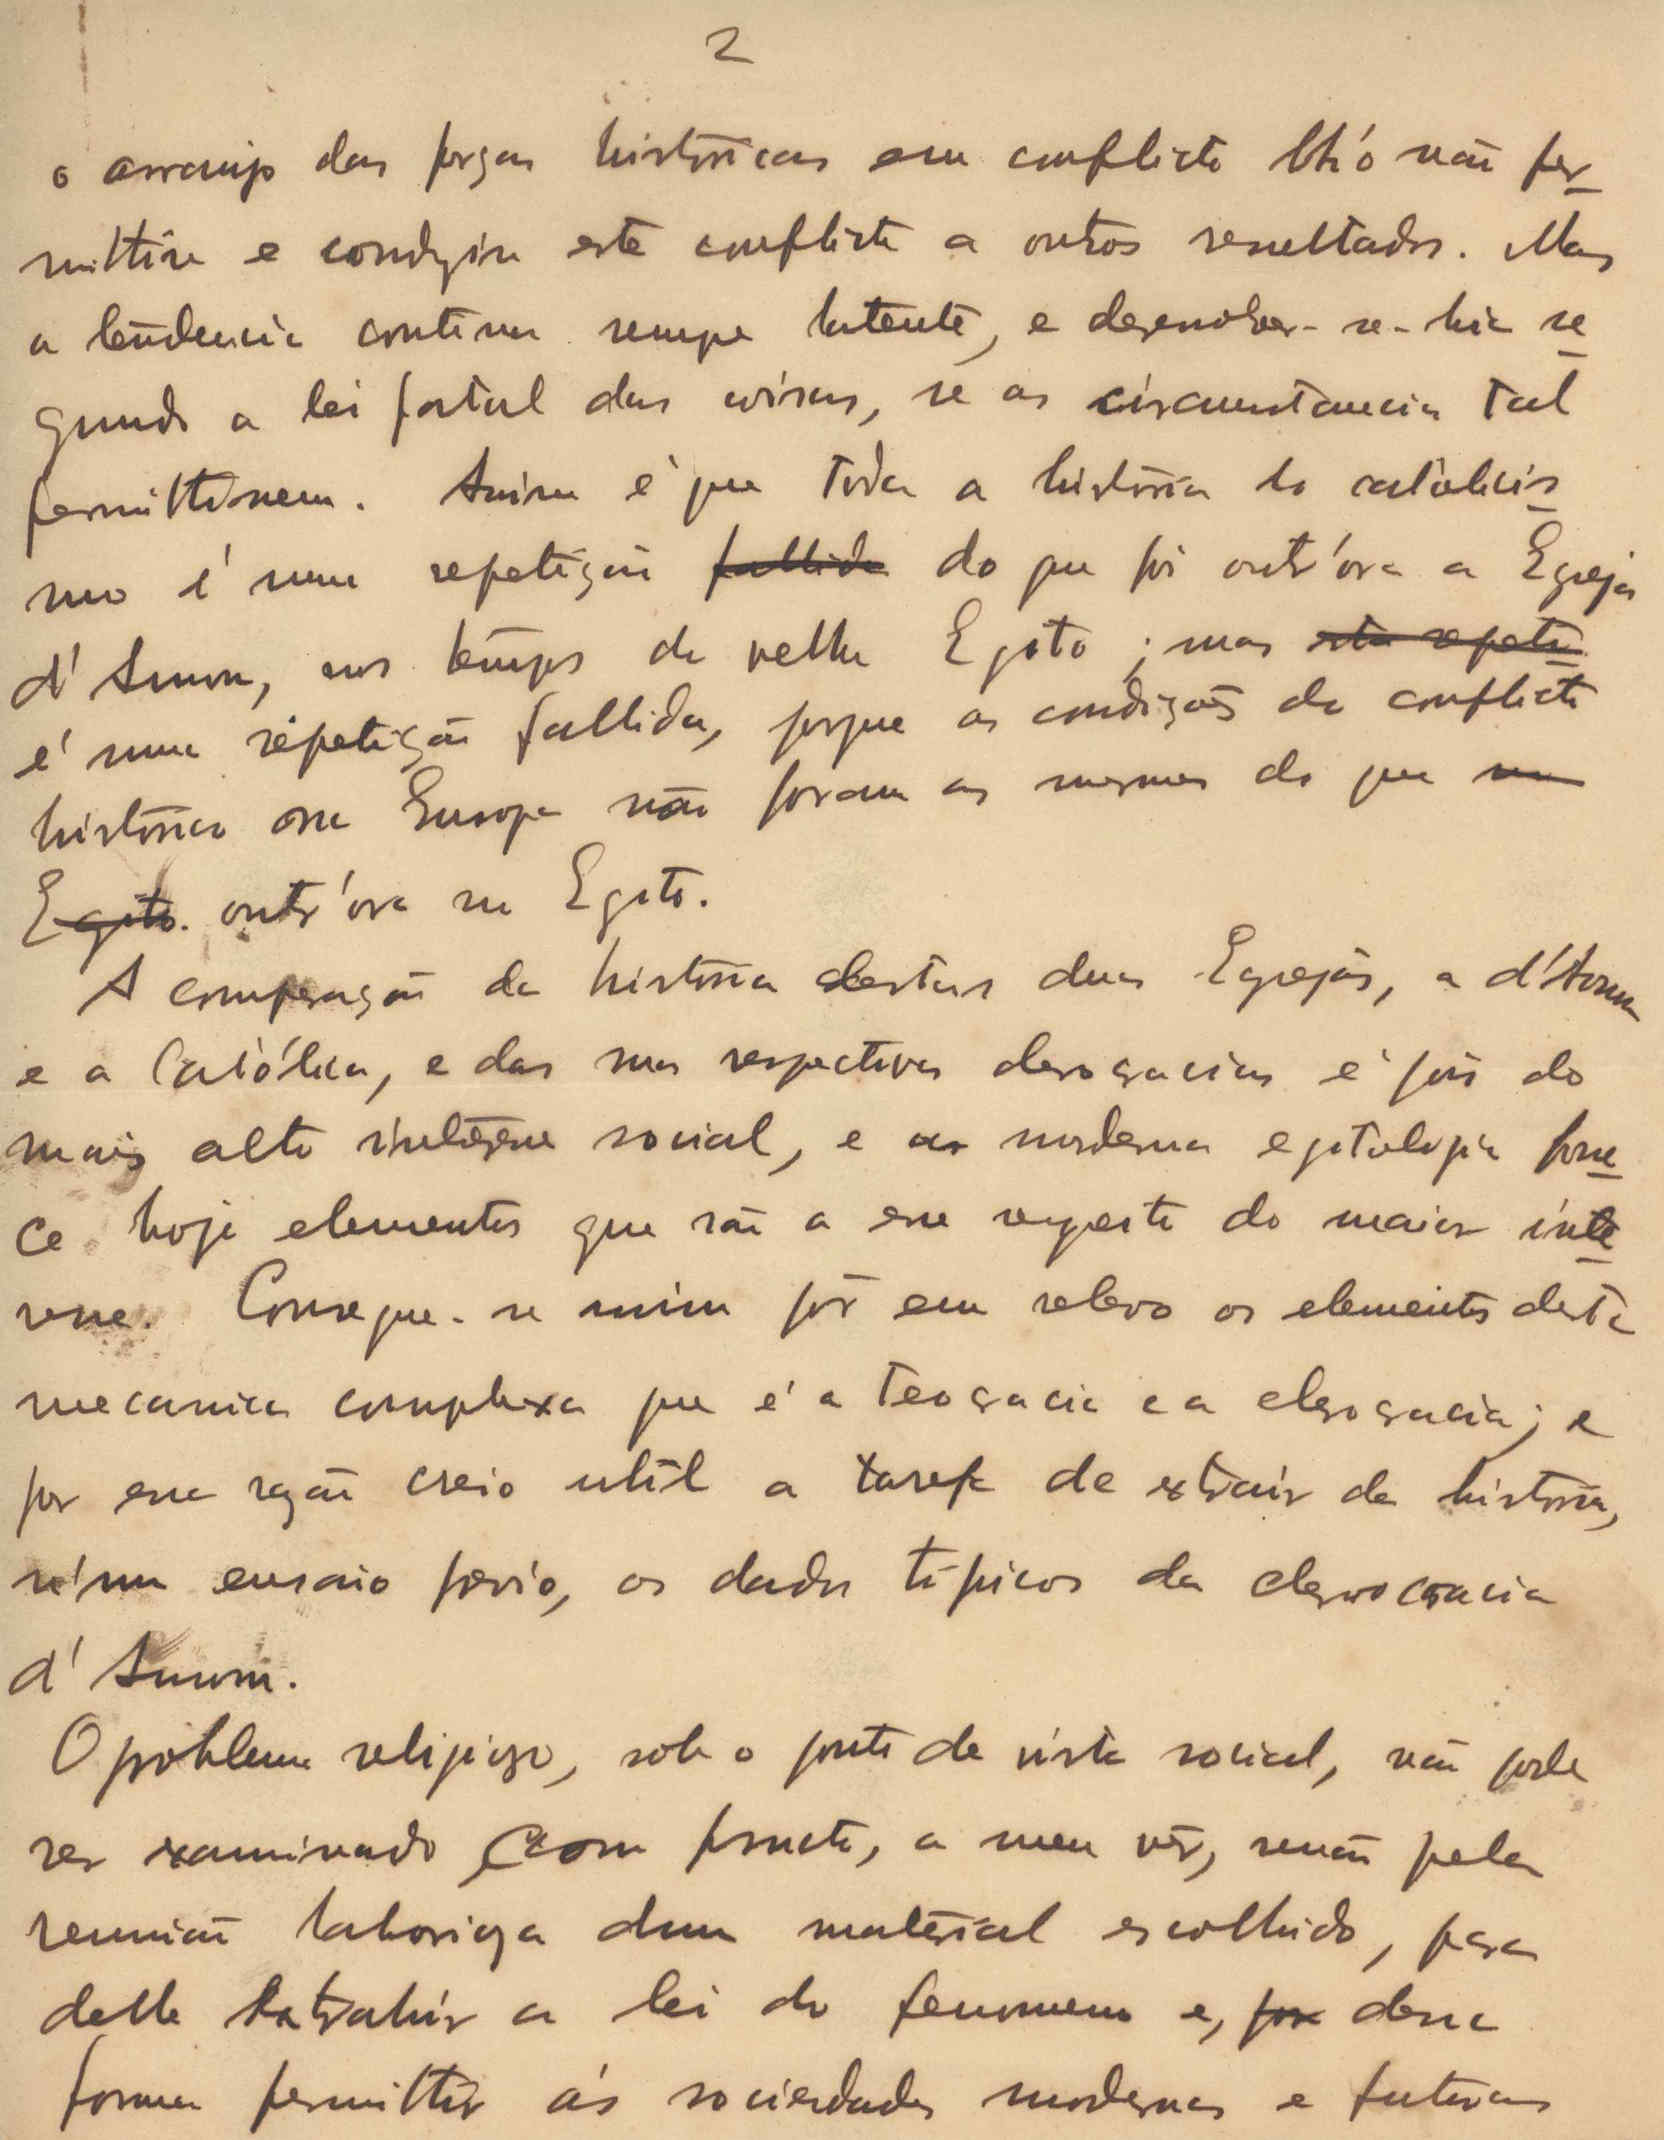 2
o arranjo das forças históricas em conflicto lh'o não per-
mittiu e conduziu este conflicto a outros resultados. Mas
a tendencia continua sempre latente, e desenvolver-se-hia se-
gundo a lei fatal das coisas, se as circumstancias tal
permittissem. Assim é que toda a historia do catolicis-
mo é uma repetição fallida do que foi outr'ora a Egreja
d'Amon, nos tempos do velho Egito; mas esta repeti-
é uma repetição fallida, porque as condições do conflicto
historico na Europa não foram as mesmas do que no
Egito. outr'ora no Egito.
A comparação da historia destas duas Egrejas, a d'Amon
e a Católica, e das suas respectivas clerocracias é pois do
mais alto interesse social, e a moderna egitologia forne-
ce hoje elementos que são a esse respeito do maior inte-
resse. Consegue-se assim pôr em relevo os elementos desta
mecanica complexa que é a teocracia e a clerocracia; e
por essa razão creio util a tarefa de extrair da historia,
n'um ensaio previo, os dados típicos da clerocracia
d'Amon.
O problema religiozo, sob o ponto de vista social, não pode
ser examinado com fructo, a meu vêr, senão pela
reunião laborioza dum material escolhido, para
delle extrahir a lei do fenomeno e, por dessa
forma permittir ás sociedades modernas e futuras